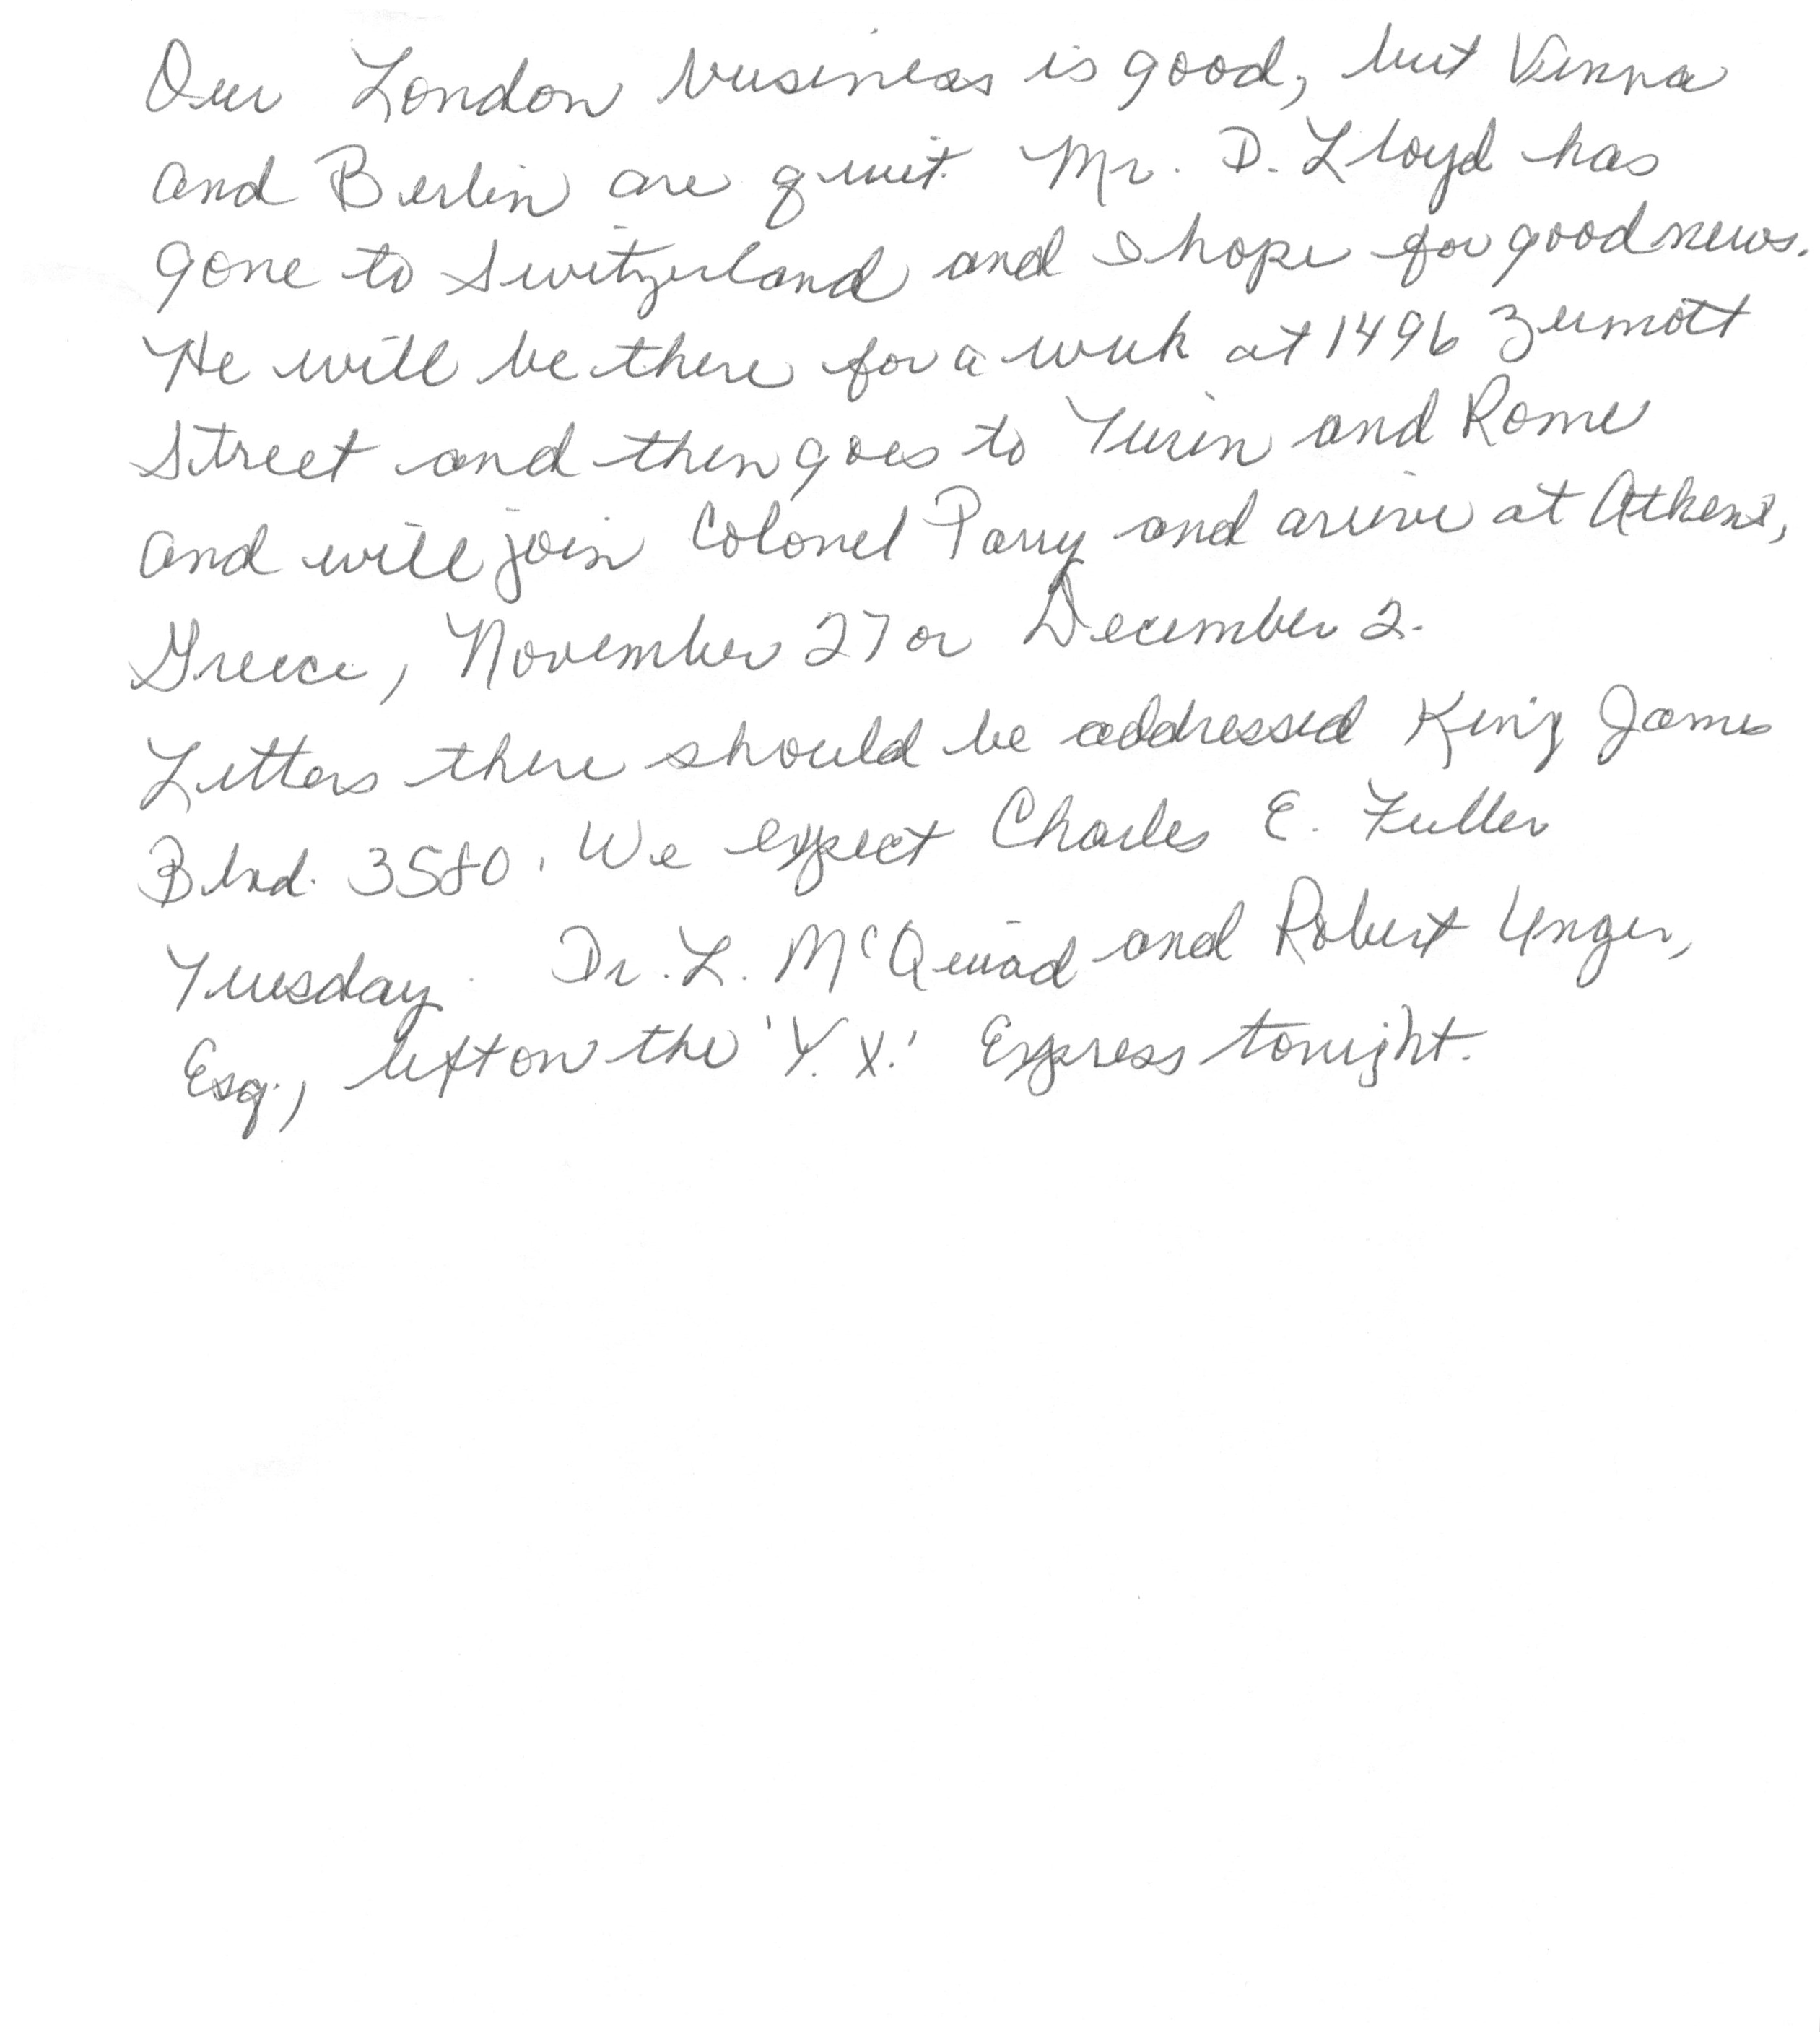 Our London business is good, but Vienna
and Berlin are quiet. Mr. D. Lloyd has
gone to Switzerland and I hope for good news.
He will be there for a week at 1496 Zermott
Street and then goes to Turin and Rome
and will join Colonel Parry and arrive at Athens,
Greece, November 27 or December 2.
Letters there should be addressed King James
Blvd. 3580. We expect Charles E. Fuller
Tuesday. Dr. L. McQuaid and Robert Unger,
Esq., left on the 'Y.X.' Express tonight.